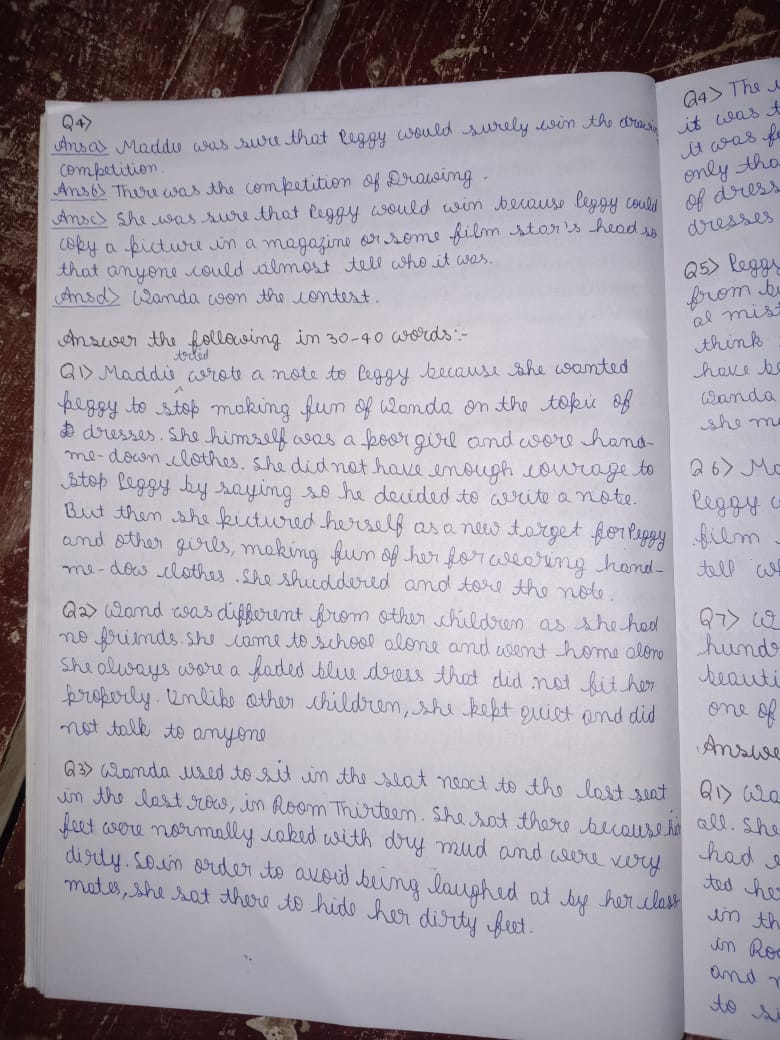 Q4>
Ansa> Maddie was sure that Peggy would surely win the drawing
competition.
Ansb> There was the competition of Drawing.
Ansc> She was sure that Peggy would win because Peggy could
copy a picture in a magazine or some film star's head so
that anyone could almost tell who it was.
Ansd> Wanda won the contest.
Answer the following in 30-40 words:-
Q1> Maddie tried wrote a note to Peggy because she wanted
peggy to stop making fun of Wanda on the topic of
dresses. She himself was a poor girl and wore hand-
me-down clothes. She did not have enough courage to
stop Peggy by saying so he decided to write a note.
But then she pictured herself as a new target for Peggy
and other girls, making fun of her for wearing hand-
me-dow clothes. She shuddered and tore the note.
Q2> Wand was different from other children as she had
no friends. She came to school alone and went home alone
She always wore a faded blue dress that did not fit her
properly. Unlike other children, she kept quiet and did
not talk to anyone
Q3> Wanda used to sit in the seat next to the last seat
in the last row, in Room Thirteen. She sat there because
feet were normally caked with dry mud and were very
dirty. So in order to avoid being laughed at by her class
mates, she sat there to hide her dirty feet.
Q4> The
it was
it was
only tha
of dress
dresses
Q5> Peggy
from
al mist
think
have be
Wanda
she m
Q6> Ma
Peggy
film
tell
Q7> W
hundr
beauti
one of
Answe
Q1> Wa
all. She
had
ted her
in th
in Roo
and
to si